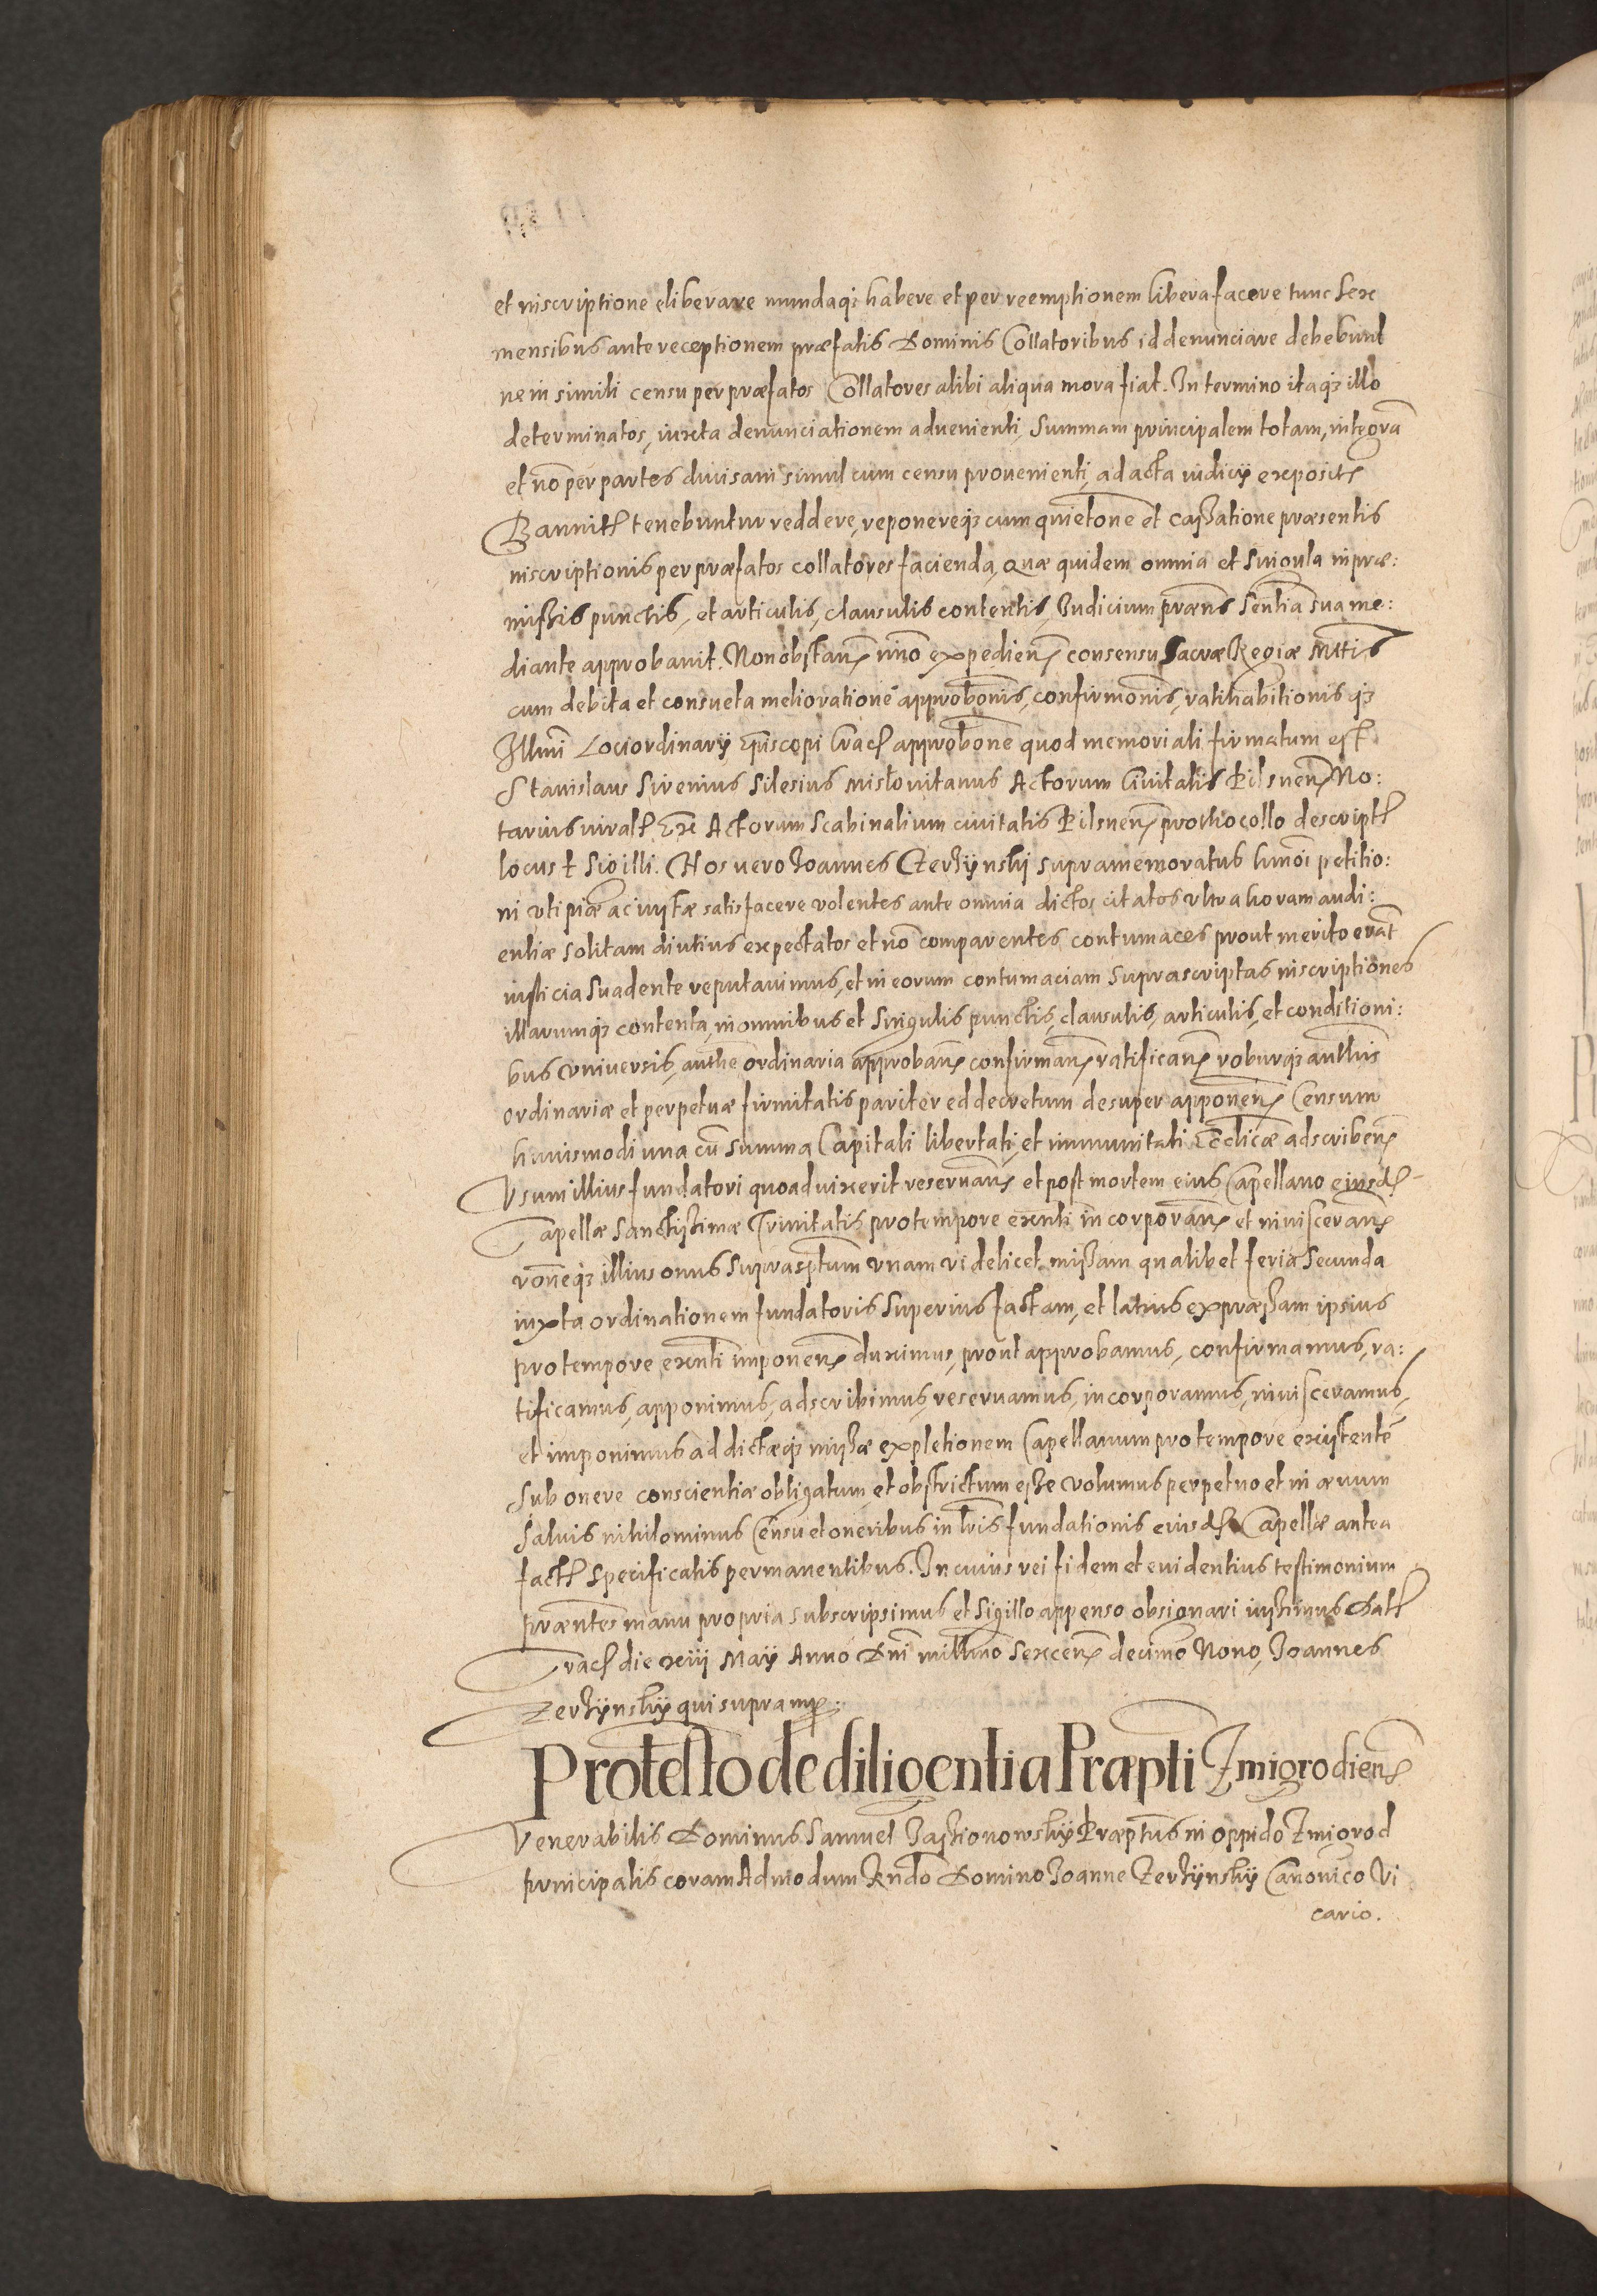 et inscriptione eliberare mundaq; habere et per reemptionem libera facere tunc sex
mensibus ante receptionem præfatis Dominis Collatoribus id denunciare debebunt
ne in simili censu per præfatos Collatores alibi aliqua mora fiat. In termino itaq; illo
determinatos, iuxta denunciationem aduenienti, summam principalem totam, integrã
et nõ per partes diuisam simul cum censu prouenienti, ad acta iudicij exposit
Bannit tenebuntur reddere, reponereq; cum quietone et cassatione præsentis
inscriptionis per præfatos collatores facienda, Quæ quidem omnia et singula in præ:
missis punctis, et articulis, clausulis contentis, Iudicium præns sentia sua me:
diante approbauit. Non obstañ nino expedieñ consensu Sacræ Regiæ Mttis
cum debita et consueta melioratione approbonis, confirmonis, ratihabitionis q;
Illmi Lociordinarij Episcopi Crac approbone quod memoriali firmatum est
Stanislaus Sirenius Silesius mislouitanus Actorum Ciuitatis Pilsneñ No:
tarius iurat Ex Actorum Scabinalium ciuitatis Pilsneñ prothocollo descript
locus † Sigilli. Nos uero Ioannes Zerzynski supramemoratus hmõi petitio:
ni vti piæ ac iustæ satisfacere volentes ante omnia dictos citatos vltra horam audi:
entiæ solitam diutius expectatos et nõ comparentes contumaces prout merito erãt
iusticia suadente reputauimus, et in eorum contumaciam suprascriptas inscriptiones
illarumq; contenta, in omnibus et singulis punctis, clausulis, articulis, et conditioni:
bus vniuersis, authe ordinaria approbañ confirmañ ratificañ roburq; authtis
ordinariæ et perpetuæ firmitatis pariter ed decretum desuper apponeñ Censum
huiusmodi una cũ summa Capitali libertati, et immunitati Ecclicæ adscribeñ
Vsum illius fundatori quoad uixerit reseruañ et post mortem eius, Capellano eiusd
Capellæ Sanctissimæ Trinitatis pro tempore exnti incorporañ et inuiscerañ
roneq; illius onus suprasptum vnam videlicet missam qualibet feria secunda
iuxta ordinationem fundatoris superius factam, et latius expræssam ipsius
pro tempore exnti imponeñ duximus, prout approbamus, confirmamus, ra:
tificamus, apponimus, adscribimus, reseruamus, incorporamus, inuisceramus,
et imponimus ad dictæq; missæ expletionem Capellanum pro tempore existentẽ
sub onere conscientiæ obligatum, et obstrictum esse volumus perpetuo et in æuum
saluis nihilominus Censu et oneribus in lris fundationis eiusd Capellæ antea
fact specificatis permanentibus. In cuius rei fidem et euidentius testimonium
præntes manu propria subscripsimus et Sigillo appenso obsignari iussimus Dat
Crac die xiij Maij Anno Dni millmo Sexceñ decimo Nono, Ioannes
Zerzynskij qui supra mp:
Protesto de diligentia Præpti Zmigrodieñ
Venerabilis Dominus Samuel Jastionowskij Præptus in oppido Zmigrod
principalis coram Admodum Rndo Domino Ioanne Zerzynskij Canonico Vi
cario.